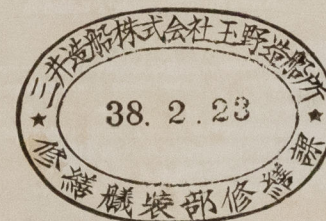 三井造船株式会社玉野造船所
38. 2. 23
修繕艤装部修繕課